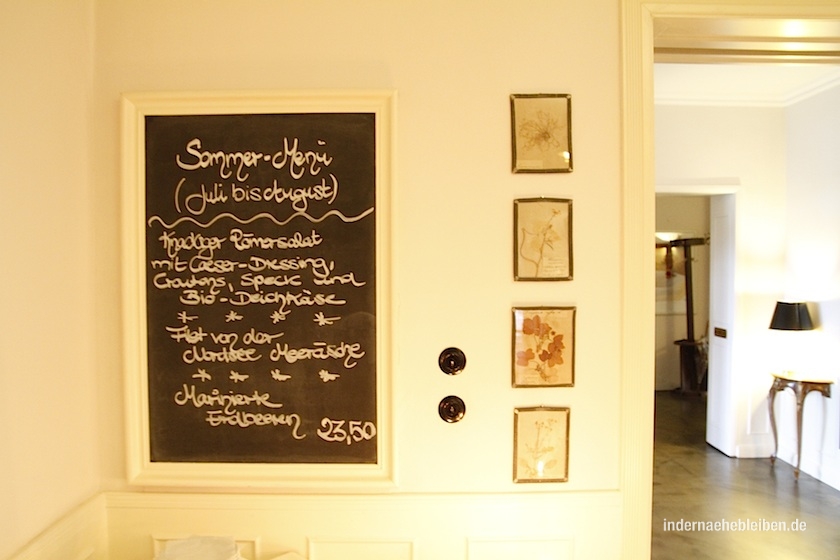 Sommer-Menü
(Juli bis August)
Knackiger Römersalat
mit Caesar-Dressing,
Croutons, Speck und
Bio-Deichkäse
Filet von der
Nordsee Meeräsche
Marinierte
Erdbeeren 23,50
indernaehebleiben.de